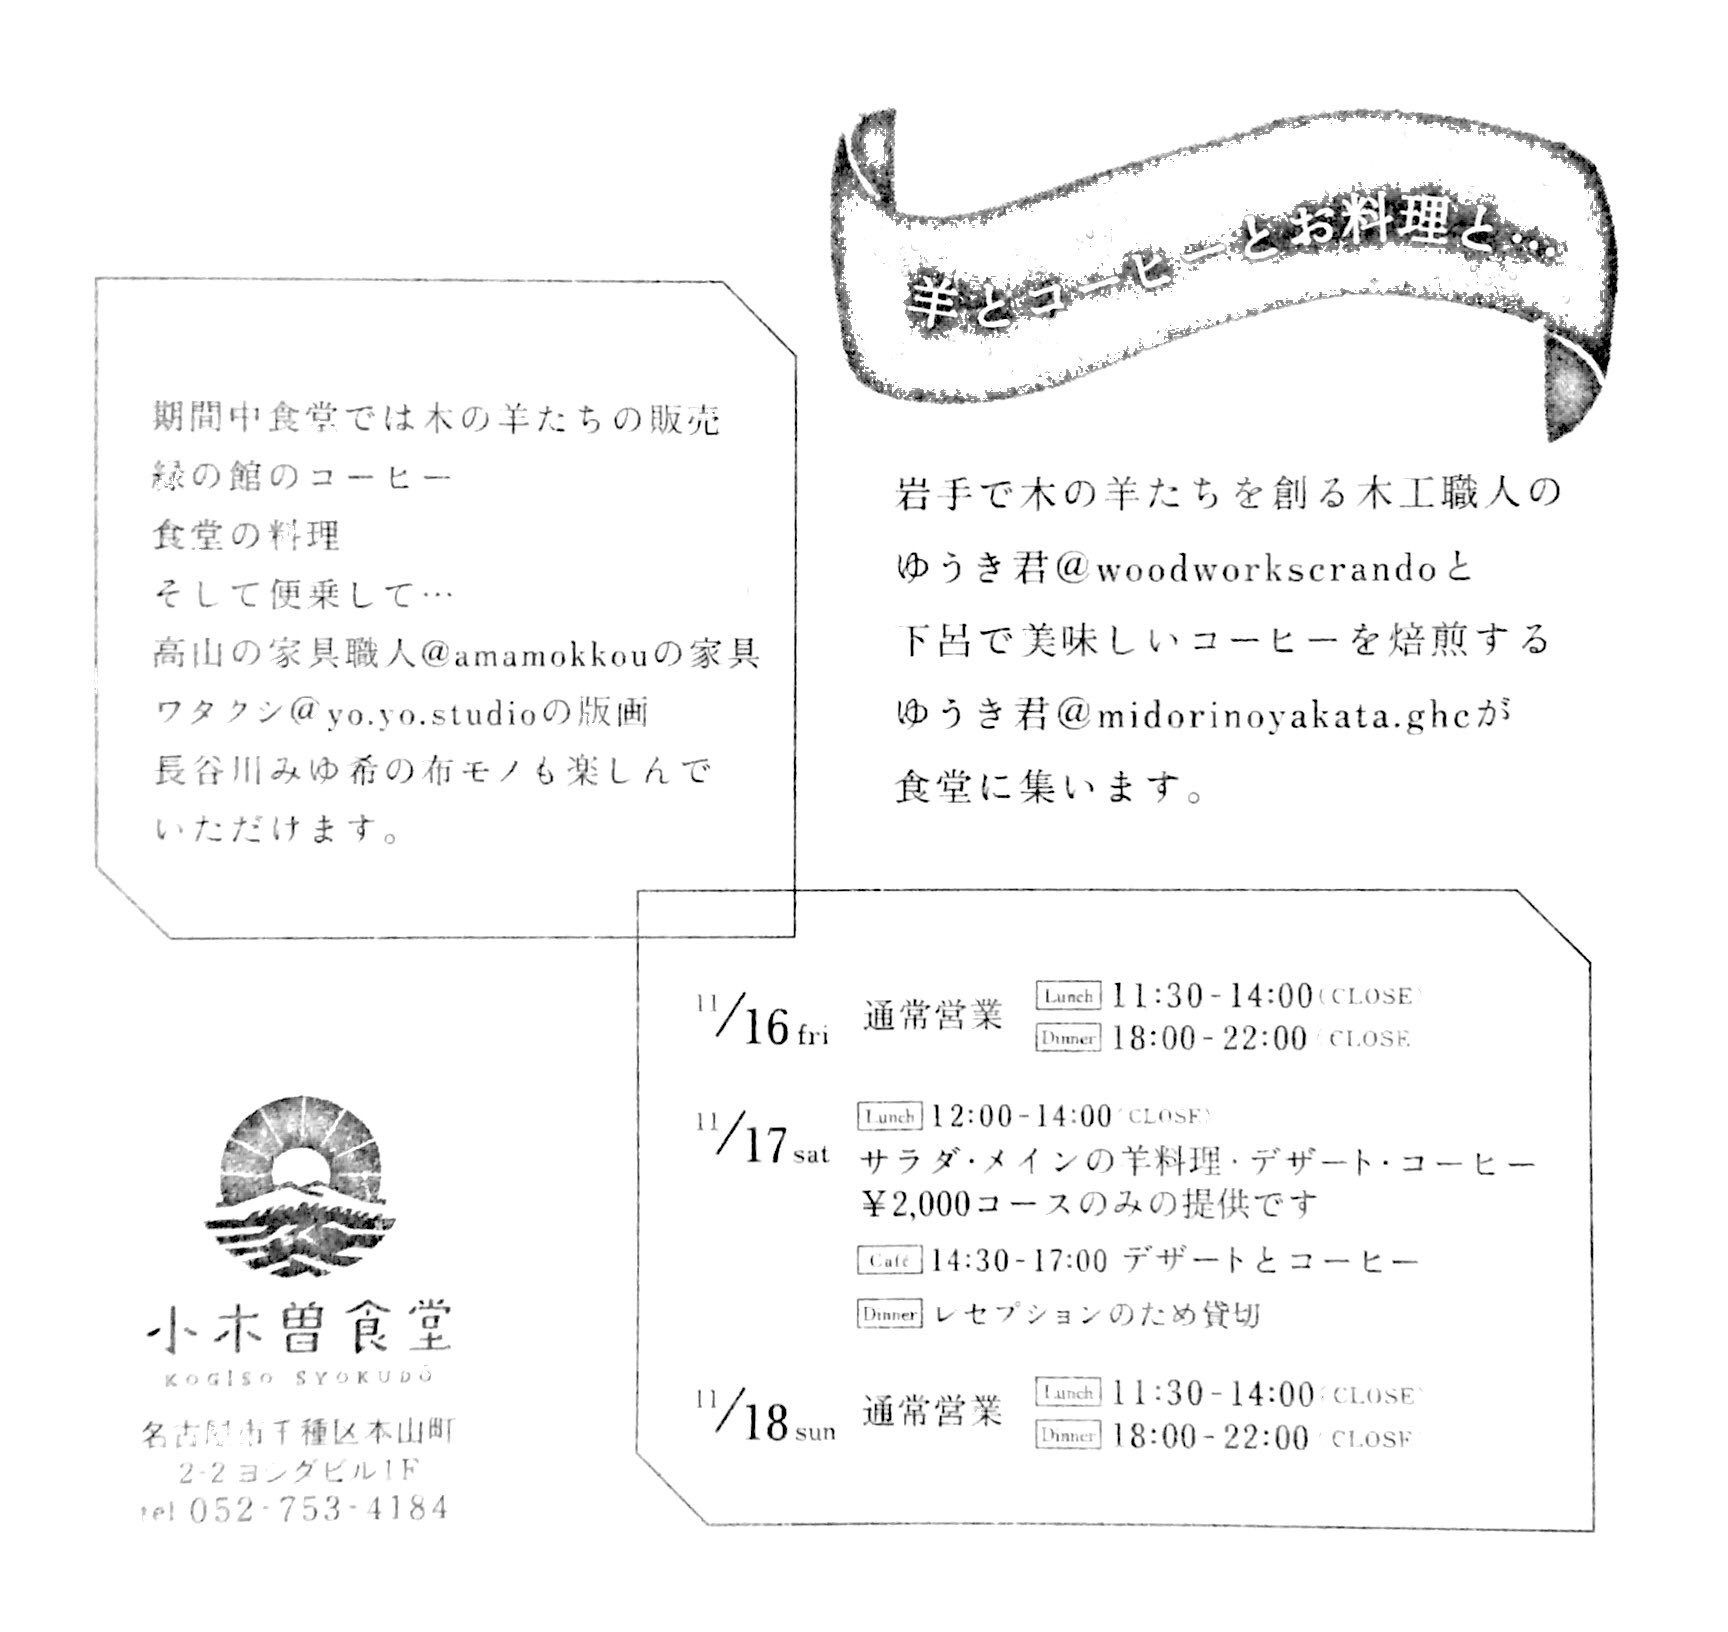 羊とコーヒーとお料理と…
岩手で木の羊たちを創る木工職人の
ゆうき君@woodworkscrandoと
下呂で美味しいコーヒーを焙煎する
ゆうき君@midorinoyakata.ghcが
食堂に集います。
期間中食堂では木の羊たちの販売
緑の館のコーヒー
食堂の料理
そして便乗して…
高山の家具職人@amamokkouの家具
ワタクシ@yo.yo.studioの版画
長谷川みゆ希の布モノも楽しんで
いただけます。
11/16 fri 通常営業 Lunch 11:30-14:00(CLOSE)
Dinner 18:00-22:00(CLOSE
11/17 sat Lunch 12:00-14:00(CLOSE)
サラダ・メインの羊料理・デザート・コーヒー
¥2,000コースのみの提供です
Café 14:30-17:00 デザートとコーヒー
Dinner レセプションのため貸切
11/18 sun 通常営業 Lunch 11:30-14:00(CLOSE)
Dinner 18:00-22:00(CLOSE
小木曽食堂
KOGISO SYOKUDŌ
名古屋市千種区本山町
2-2 ヨシダビル1F
tel 052-753-4184